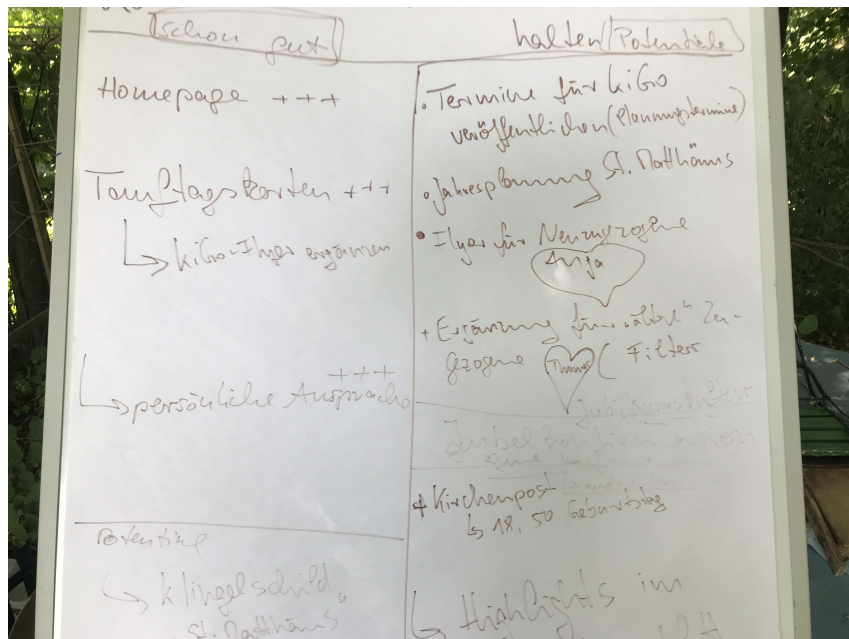 schon gut
Homepage +++
Tauftagskarten +++
↳ KiGo-Flyer ergänzen
+++
↳ persönliche Ansprache
Potentiale
↳ Klingelschild
St. Matthäus"
halten Potentiale
• Termine für KiGo
veröffentlichen (Planungstermine)
• Jahresplanung St. Matthäus
• Flyer für Neuzugezogene
Anja
+ Ergänzung für "ältere" Zu-
gezogene Thomas ( Filtern
+ Kirchenpost
↳ 18, 50 Geburtstag
↳ Highlights im